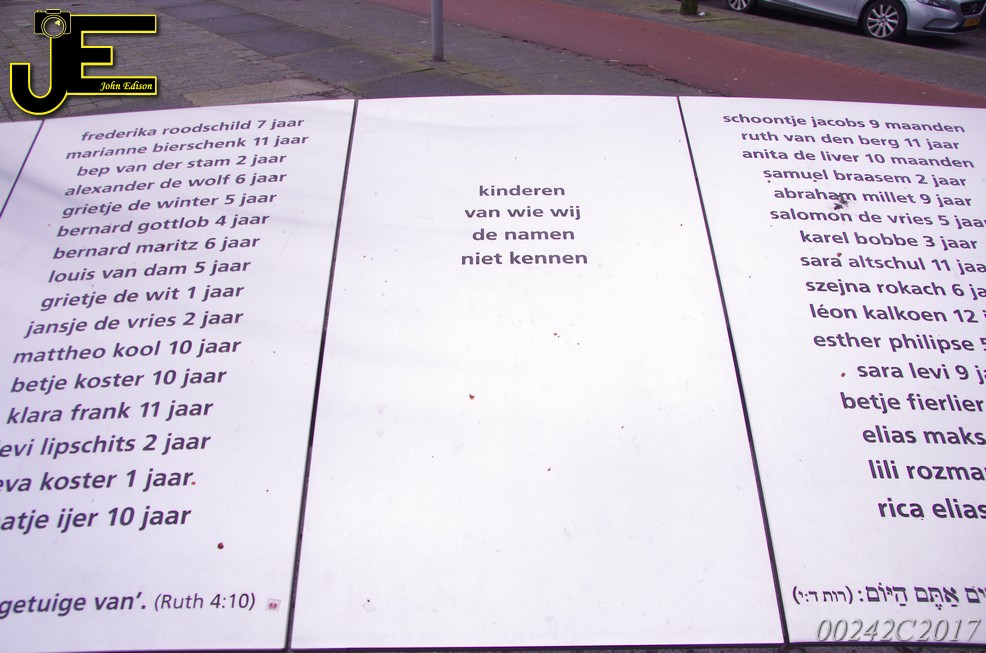 JE
John Edison
frederika roodschild 7 jaar
marianne bierschenk 11 jaar
bep van der stam 2 jaar
alexander de wolf 6 jaar
grietje de winter 5 jaar
bernard gottlob 4 jaar
bernard maritz 6 jaar
louis van dam 5 jaar
grietje de wit 1 jaar
jansje de vries 2 jaar
mattheo kool 10 jaar
betje koster 10 jaar
klara frank 11 jaar
levi lipschits 2 jaar
eva koster 1 jaar
ijer 10 jaar
getuige van’. (Ruth 4:10)
kinderen
van wie wij
de namen
niet kennen
schoontje jacobs 9 maanden
ruth van den berg 11 jaar
anita de liver 10 maanden
samuel braasem 2 jaar
abraham millet 9 jaar
salomon de vries 5 jaar
karel bobbe 3 jaar
sara altschul 11 jaa
szejna rokach 6 ja
léon kalkoen 12
esther philipse 5
sara levi 9 ja
betje fierlier
elias maks
lili rozma
rica elias
אַתֶּם הַיּוֹם: (רות ד:י)
00242C2017